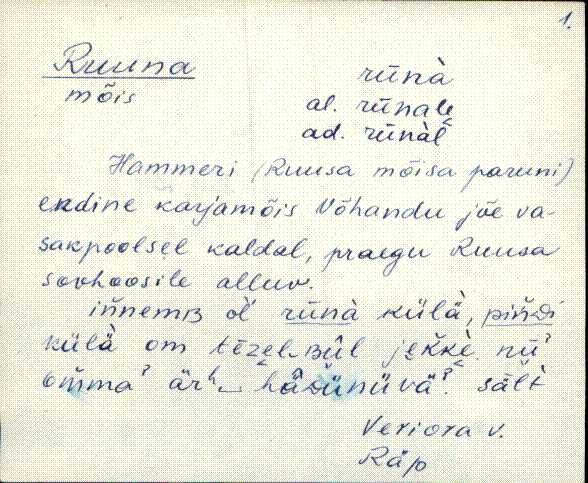 1.
Ruuna
mõis
rūnà
al. rūnalₑ
ad. rūnàl
Hammeri (Ruusa mõisa paruni)
endine karjamõis Võhandu jõe va-
sakpoolsel kaldal, praegu Ruusa
sovhoosile alluv.
iňnemʙ ol̆ rūnà külà, piňᴅi
külà om tēze̬l‿ʙûl je̬k̆kè̬ nüˀ
om̆maˀ ärʰ‿ häᴢünüväˀ. sält̀
Veriora v.
Räp